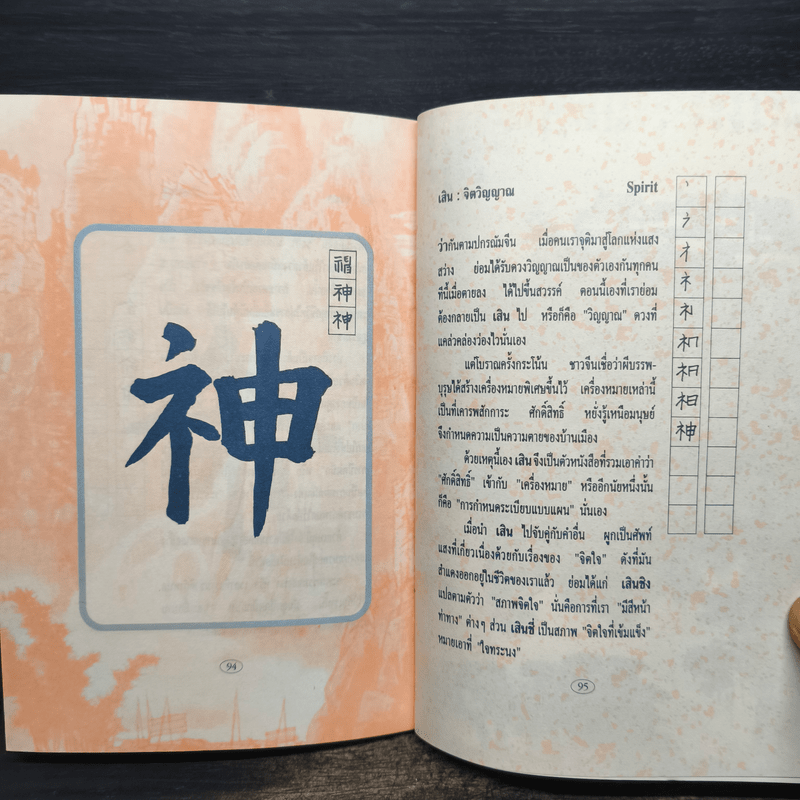 神
神
神
94
เสิน : จิตวิญญาณ Spirit
ว่ากันตามปกรณัมจีน เมื่อคนเราจุติมาสู่โลกแห่งแสง
สว่าง ย่อมได้รับดวงวิญญาณเป็นของตัวเองกันทุกคน
ทีนี้เมื่อตายลง ได้ไปขึ้นสวรรค์ ตอนนี้เองที่เราย่อม
ต้องกลายเป็น เสิน ไป หรือก็คือ "วิญญาณ" ดวงที่
แคล่วคล่องว่องไวนั่นเอง
แต่โบราณครั้งกระโน้น ชาวจีนเชื่อว่าผีบรรพ-
บุรุษได้สร้างเครื่องหมายพิเศษขึ้นไว้ เครื่องหมายเหล่านี้
เป็นที่เคารพสักการะ ศักดิ์สิทธิ์ หยั่งรู้เหนือมนุษย์
จึงกำหนดความเป็นความตายของบ้านเมือง
ด้วยเหตุนี้เอง เสิน จึงเป็นตัวหนังสือที่รวมเอาคำว่า
"ศักดิ์สิทธิ์" เข้ากับ "เครื่องหมาย" หรืออีกนัยหนึ่งนั้น
ก็คือ "การกำหนดระเบียบแบบแผน" นั่นเอง
เมื่อนำ เสิน ไปจับคู่กับคำอื่น ผูกเป็นศัพท์
แสงที่เกี่ยวเนื่องด้วยกับเรื่องของ "จิตใจ" ดังที่มัน
สำแดงออกอยู่ในชีวิตของเราแล้ว ย่อมได้แก่ เสินชิง
แปลตามตัวว่า "สภาพจิตใจ" นั่นคือการที่เรา "มีสีหน้า
ท่าทาง" ต่างๆ ส่วน เสินชี่ เป็นสภาพ "จิตใจที่เข้มแข็ง"
หมายเอาที่ "ใจทระนง"
神
95